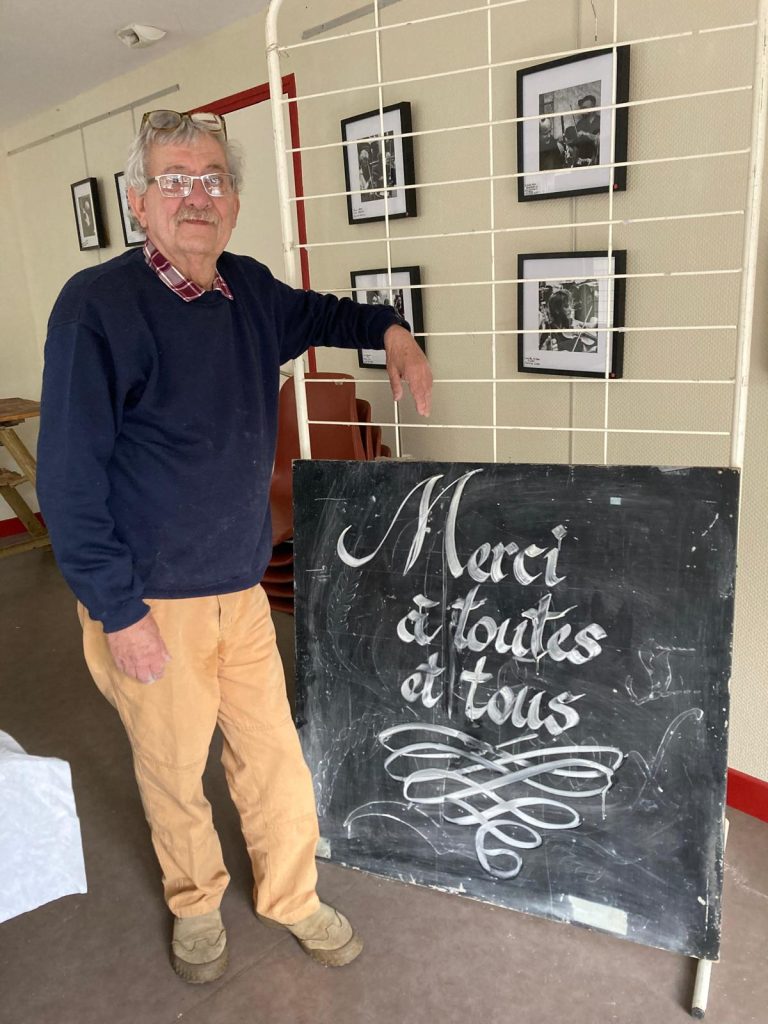 Merci
à toutes
et tous